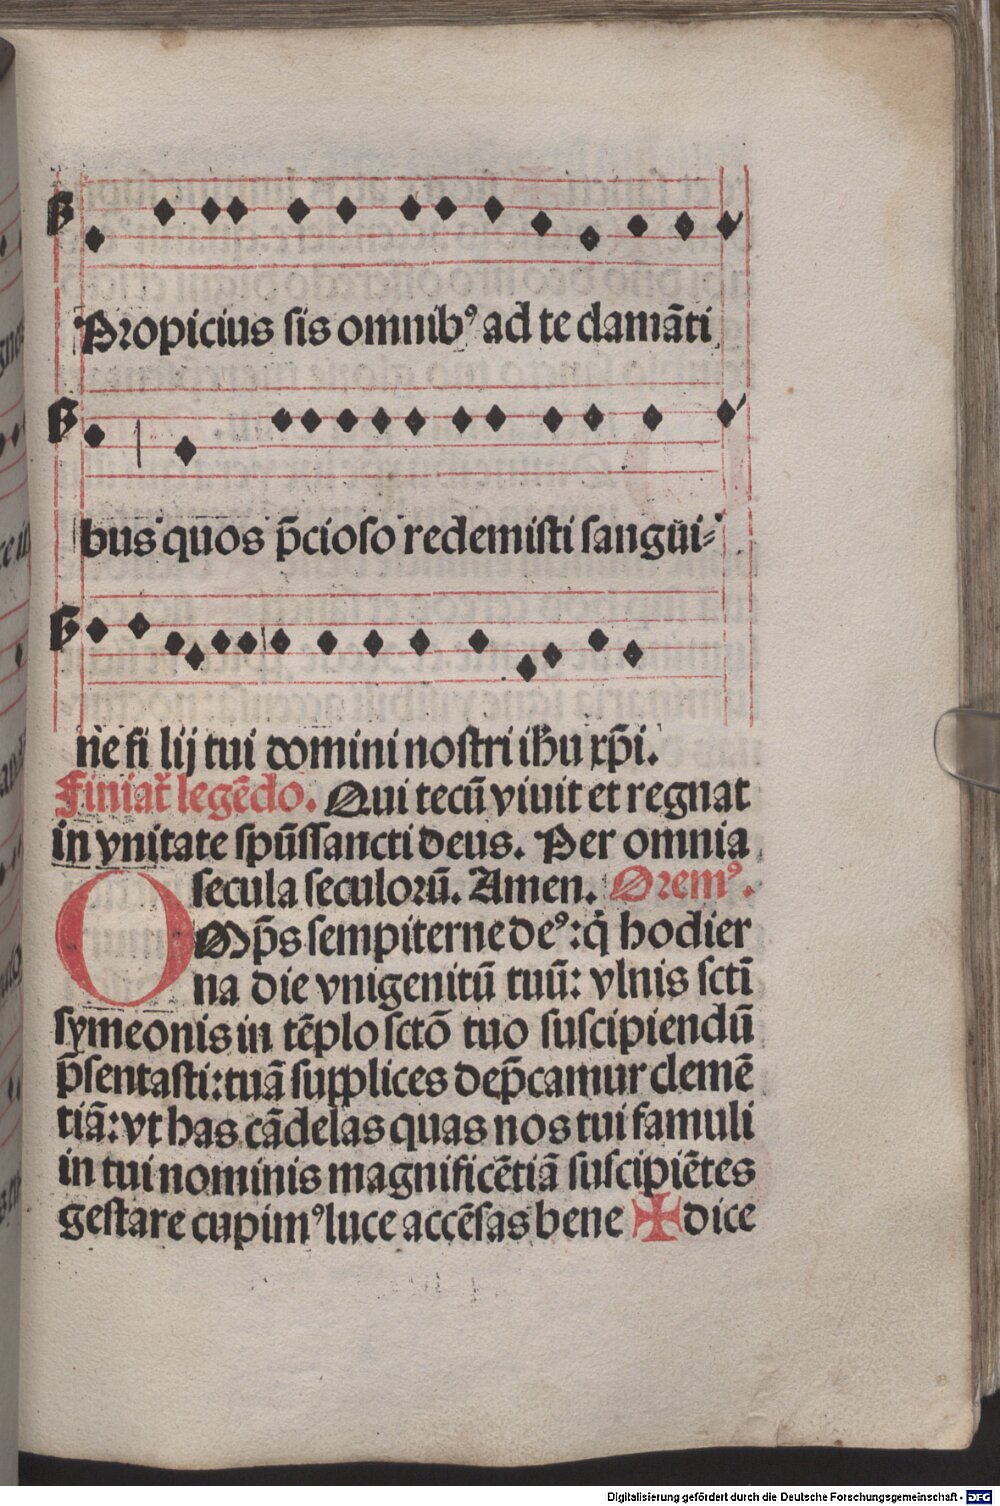 Propicius sis omnibꝰ ad te clamāti
bus quos p̄cioso redemisti sangui⸗
ne fi lij tui domini nostri ihu xp̄i.
Finiat᷑ legēdo. Qui tecū viuit et regnat
in vnitate spūssancti deus. Per omnia
secula seculorū. Amen. Oremꝰ.
Omp̄s sempiterne deꝰ: q̇ hodier
na die vnigenitū tuū: vlnis sctī
symeonis in tēplo sctō tuo suscipiendū
p̄sentasti: tuā supplices dep̄camur clemē
tiā: vt has cādelas quas nos tui famuli
in tui nominis magnificētiā suscipiētes
gestare cupimꝰ luce accēsas bene ✠ dice
Digitalisierung gefördert durch die Deutsche Forschungsgemeinschaft - DFG